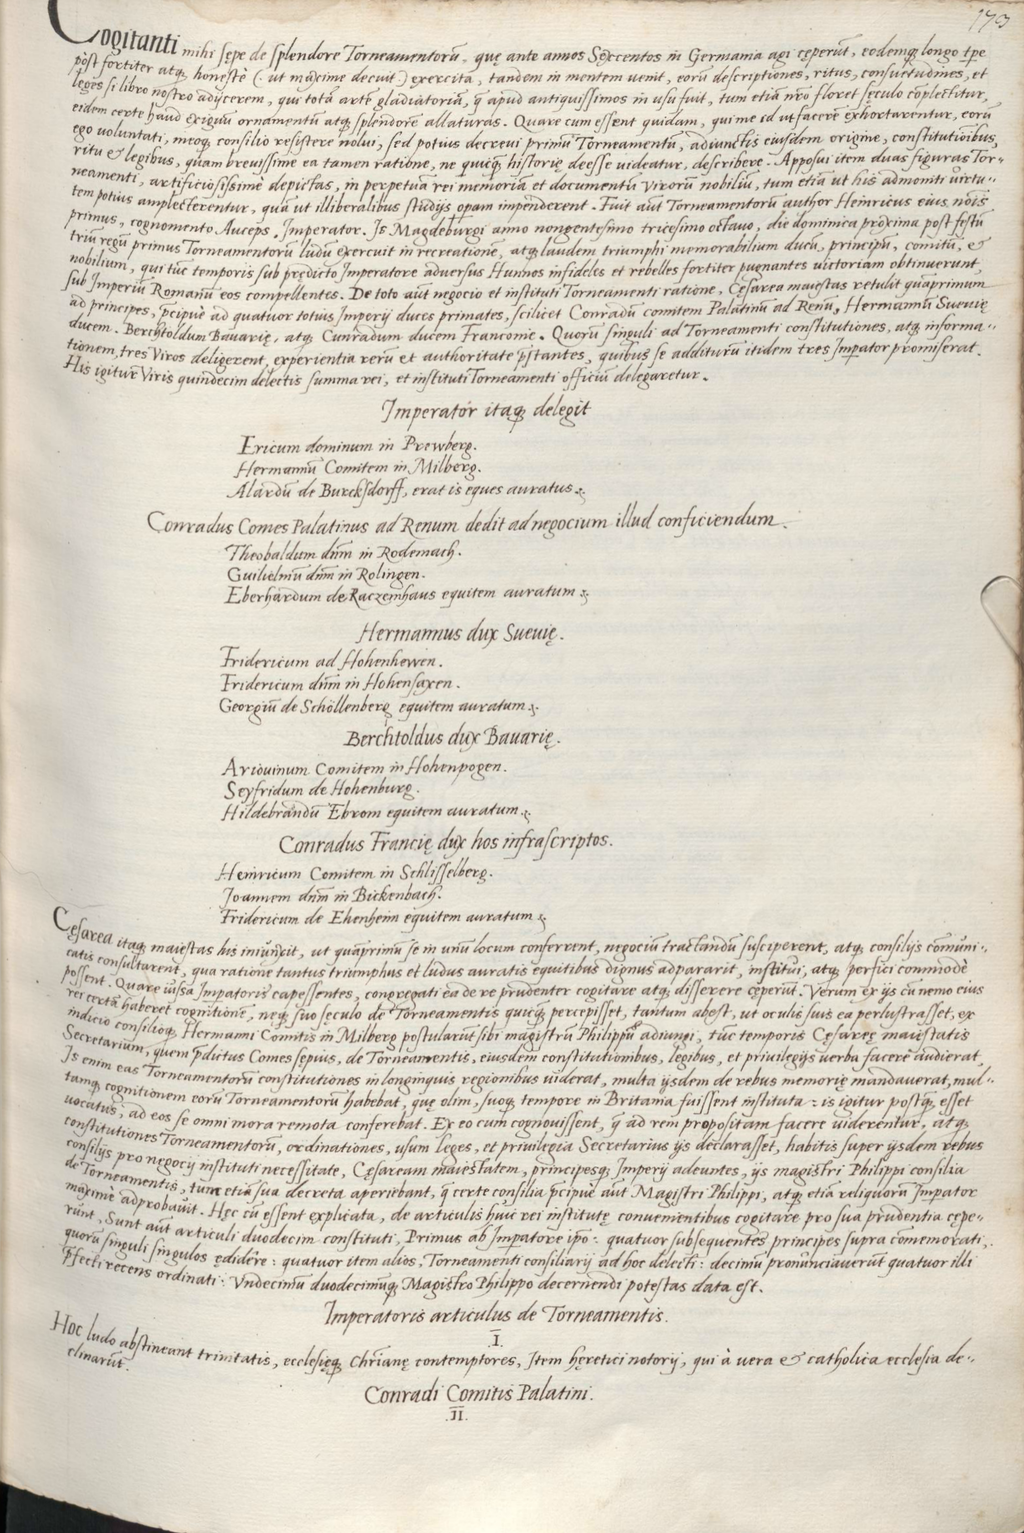 173
Cogitanti mihi sępe de splendore Torneamentorū, quę ante annos Sexcentos in Germania agi cęperūt, eodemq; longo tp̄e
pòst fortiter atq; honestè (: ut maxime decuit :) exercita, tandem in mentem uenit, eorū descriptiones, ritus, consuetudines, et
leges si libro nostro adijcerem, qui totā artē gladiatoriā, q̄ apud antiquissimos in usu fuit, tum etiā nr̄o floret sęculo cōplectitur,
eidem certe haud exiguū ornamentū atq; splendorē allaturas. Quare cum essent quidam, qui me id ut facere exhortarentur, eorū
ego uoluntati, meoq; consilio resistere nolui, sed potius decreui primū Torneamentū, adiunctis eiusdem origine, constitutionibus,
ritu & legibus, quàm breuissime ea tamen ratione, ne quicq; historię deesse uideatur, describere. Apposui item duas figuras Tor-
neamenti, artificiosissimè depictas, in perpetuā rei memoriā et documentū virorū nobiliū, tum etiā ut his admoniti uirtu-
tem potius amplecterentur, quā ut illiberalibus studijs operam impenderent. Fuit aūt Torneamentorū author Heinricus eius nōis
primus, cognomento Auceps, Imperator. Is Magdeburgi anno nongentesimo tricesimo octauo, die dominica proxima post festū
triū regū primus Torneamentorū ludū exercuit in recreationē, atq; laudem triumphi memorabilium ducū, principū, comitū, &
nobilium, qui tūc temporis sub prędicto Imperatore aduersus Hunnos infideles et rebelles fortiter pugnantes uictoriam obtinuerunt,
sub Imperiū Romanū eos compellentes. De toto aūt negocio et instituti Torneamenti ratione, Cęsarea maiestas retulit quāprimum
ad principes, p̄cipuè ad quatuor totius Imperij duces primates, scilicet Conradū comitem Palatinū ad Renū, Hermannū Sueuię
ducem, Berchtoldum Bauarię, atq; Cunradum ducem Franconię. Quorū singuli ad Torneamenti constitutiones, atq; informa-
tionem, tres Viros deligerent, experientia rerū et authoritate p̄stantes, quibus se additurū itidem tres Imp̄ator promiserat.
His igitur Viris quindecim delectis summa rei, et instituti Torneamenti officiū delegaretur.
Imperatór itaq; delegit
Ericum dominum in Prewberg.
Hermannū Comitem in Milberg.
Alardū de Burcksdorff, erat is eques auratus.
Conradus Comes Palatinus ad Renum dedit ad negocium illud conficiendum.
Theobaldum dn̄m in Rodemach.
Guilielmū dn̄m in Rolingen.
Eberhardum de Raczemhaus equitem auratum
Hermannus dux Sueuię.
Fridericum ad Hohenhewen.
Fridericum dn̄m in Hohensaxen.
Georgiū de Schöllenberg equitem auratum.
Berchtoldus dux Bauarię.
Ariouinum Comitem in Hohenpogen.
Seyfridum de Hohenburg.
Hildebrandū Ebrom equitem auratum.
Conradus Francię dux hos infrascriptos.
Heinricum Comitem in Schlisselberg.
Joannem dn̄m in Bickenbach.
Fridericum de Ehenheim equitem auratum
Cęsarea itaq; maiestas his iniunxit, ut quāprimū se in unū locum conferrent, negociū tractandū susciperent, atq; consilijs cōmuni-
catis consultarent, qua ratione tantus triumphus et ludus auratis equitibus dignus adpararit, institui, atq; perfici commodè
possent. Quare iussa Imp̄atoris capessentes, congregati ea de re prudenter cogitare atq; disserere cęperūt. Verum ex ijs cū nemo eius
rei certā haberet cognitionē, neq; suo seculo de Torneamentis quicq; percepisset, tantum abest, ut oculis suis ea perlustrasset, ex
indicio consilioq; Hermanni Comitis in Milberg postularūt sibi magistrū Philippū adiungi, tūc temporis Cęsareę maiestatis
Secretarium, quem p̄dictus Comes sepius, de Torneamentis, eiusdem constitutionibus, legibus, et priuilegijs uerba facere audierat,
Is enim eas Torneamentorū constitutiones in longinquis regionibus uiderat, multa ijsdem de rebus memorię mandauerat, mul-
tamq; cognitionem eorū Torneamentorū habebat, quę olim, suoq; tempore in Britania fuissent instituta: is igitur postq̄; esset
uocatus, ad eos se omni mora remota conferebat. Ex eo cum cognouissent, q̄ ad rem propositam facere uiderentur, atq;
constitutiones Torneamentorū, ordinationes, usum leges, et priuilegia Secretarius ijs declarasset, habitis super ijsdem rebus
consilijs pro negocij instituti necessitate, Cęsaream maiestatem, principesq; Imperij adeuntes, ijs magistri Philippi consilia
de Torneamentis, tum etiā sua decreta aperiebant, q̄ certe consilia p̄cipuè aūt Magistri Philippi, atq; etiā reliquorū Imp̄ator
maximè adprobauit. Hęc cū essent explicata, de articulis huic rei institutę conuenientibus cogitare pro sua prudentia cępe-
rūnt, Sunt aūt articuli duodecim constituti, Primus ab Imp̄atore ip̄o: quatuor subsequentes principes supra cōmemorati,
quorū singuli singulos ędidêre: quatuor item alios, Torneamenti consiliarij ad hoc delecti: decimū pronūnciauerūt quatuor illi
p̄fecti recens ordinati: Vndecimū duodecimūq; Magistro Philippo decernendi potestas data est.
Imperatoris articulus de Torneamentis.
I.
Hoc ludo abstineant trinitatis, ecclesięq; Chr̄ianę contemptores, Item hęretici notorij, qui à uera & catholica ecclesia de-
clinarūt.
Conradi Comitis Palatini.
.II.